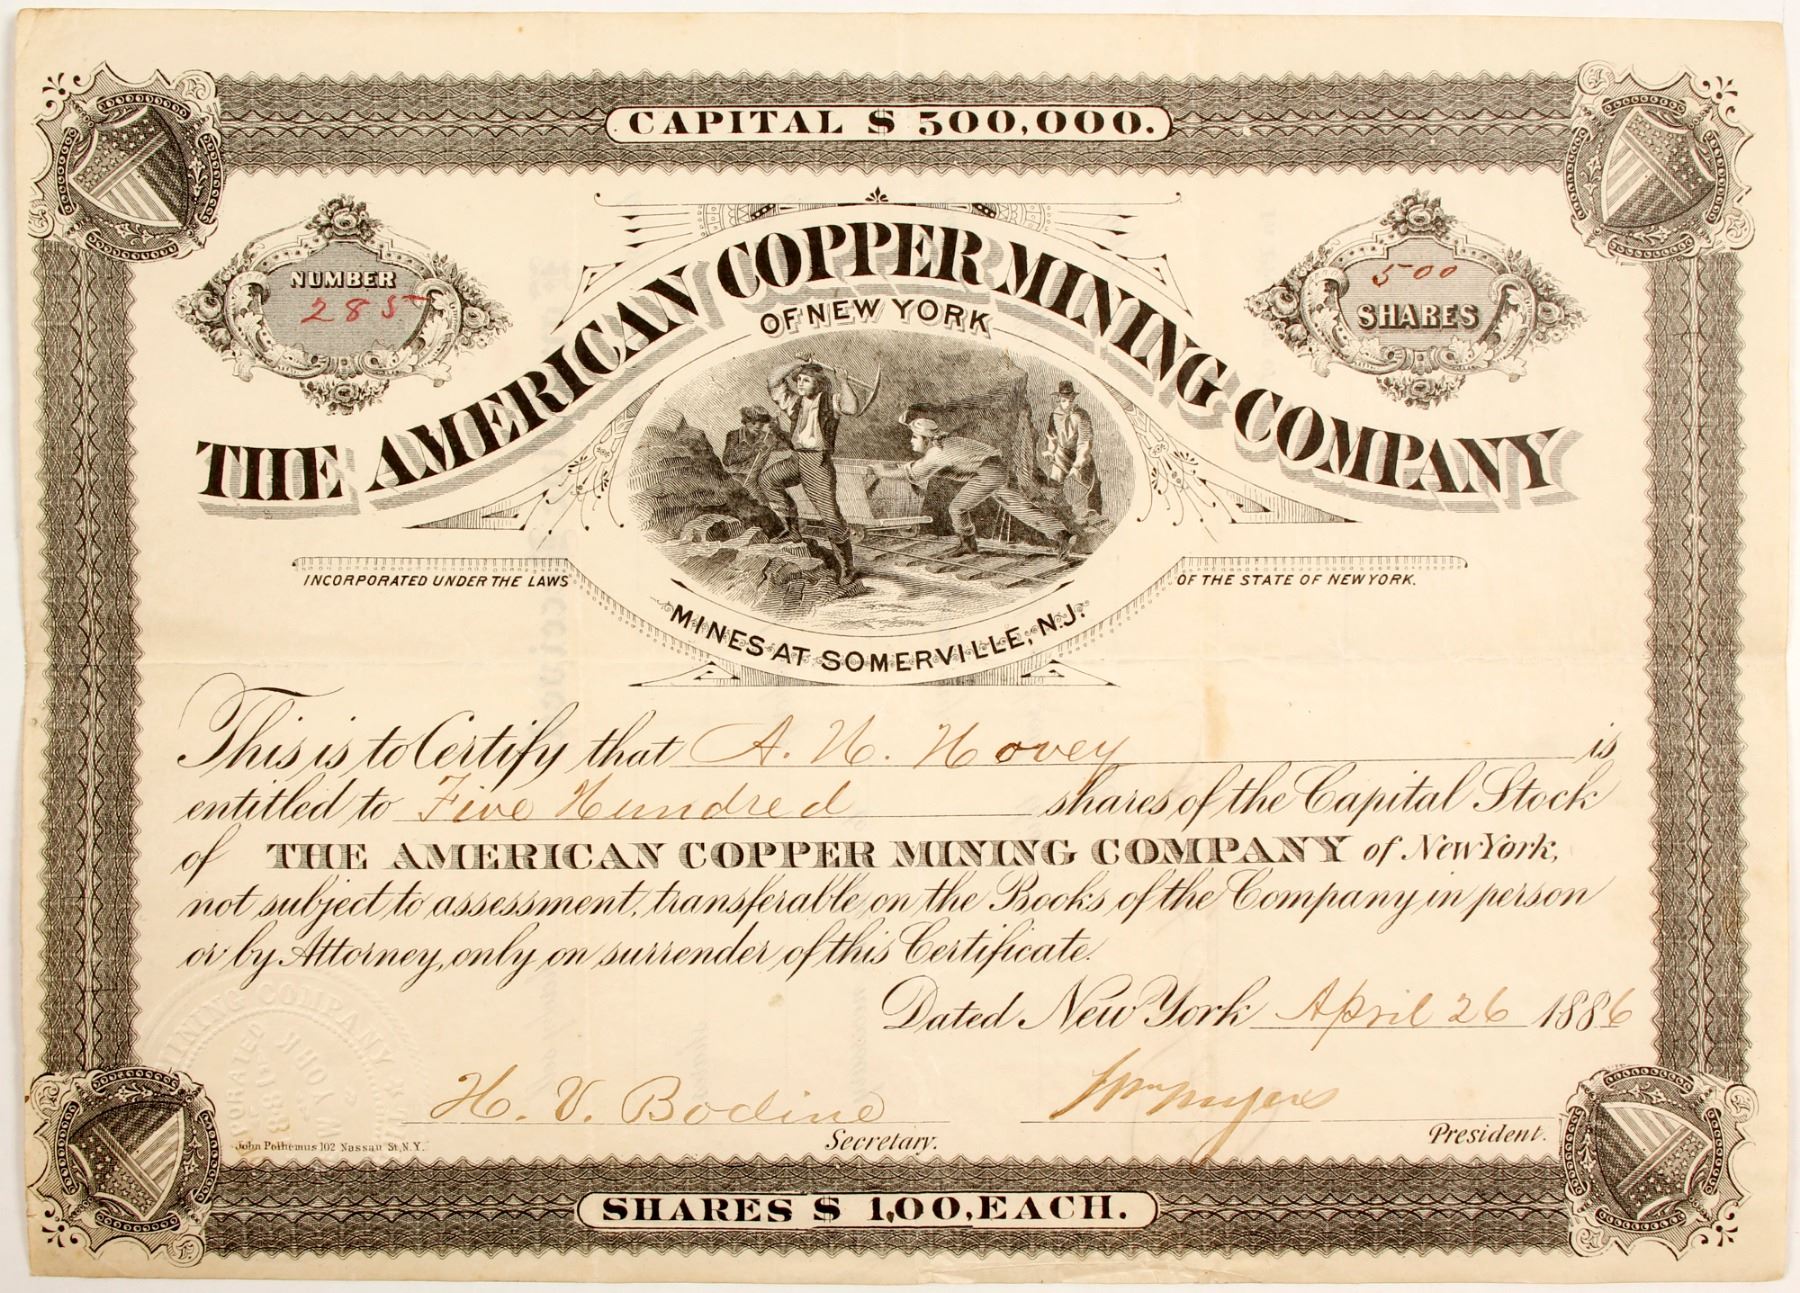 CAPITAL $ 500,000.
NUMBER
285
500
SHARES
THE AMERICAN COPPER MINING COMPANY
OF NEW YORK
INCORPORATED UNDER THE LAWS OF THE STATE OF NEW YORK.
MINES AT SOMERVILLE, N.J.
This is to Certify that A. N. Hovey is
entitled to Five Hundred shares of the Capital Stock
of THE AMERICAN COPPER MINING COMPANY of New York,
not subject to assessment, transferable on the Books of the Company in person
or by Attorney, only on surrender of this Certificate.
Dated New York April 26 1886
H. V. Bodine
Secretary.
Wm Myers
President.
MINING COMPANY
John Polhemus 102 Nassau St, N.Y.
SHARES $ 1,00, EACH.